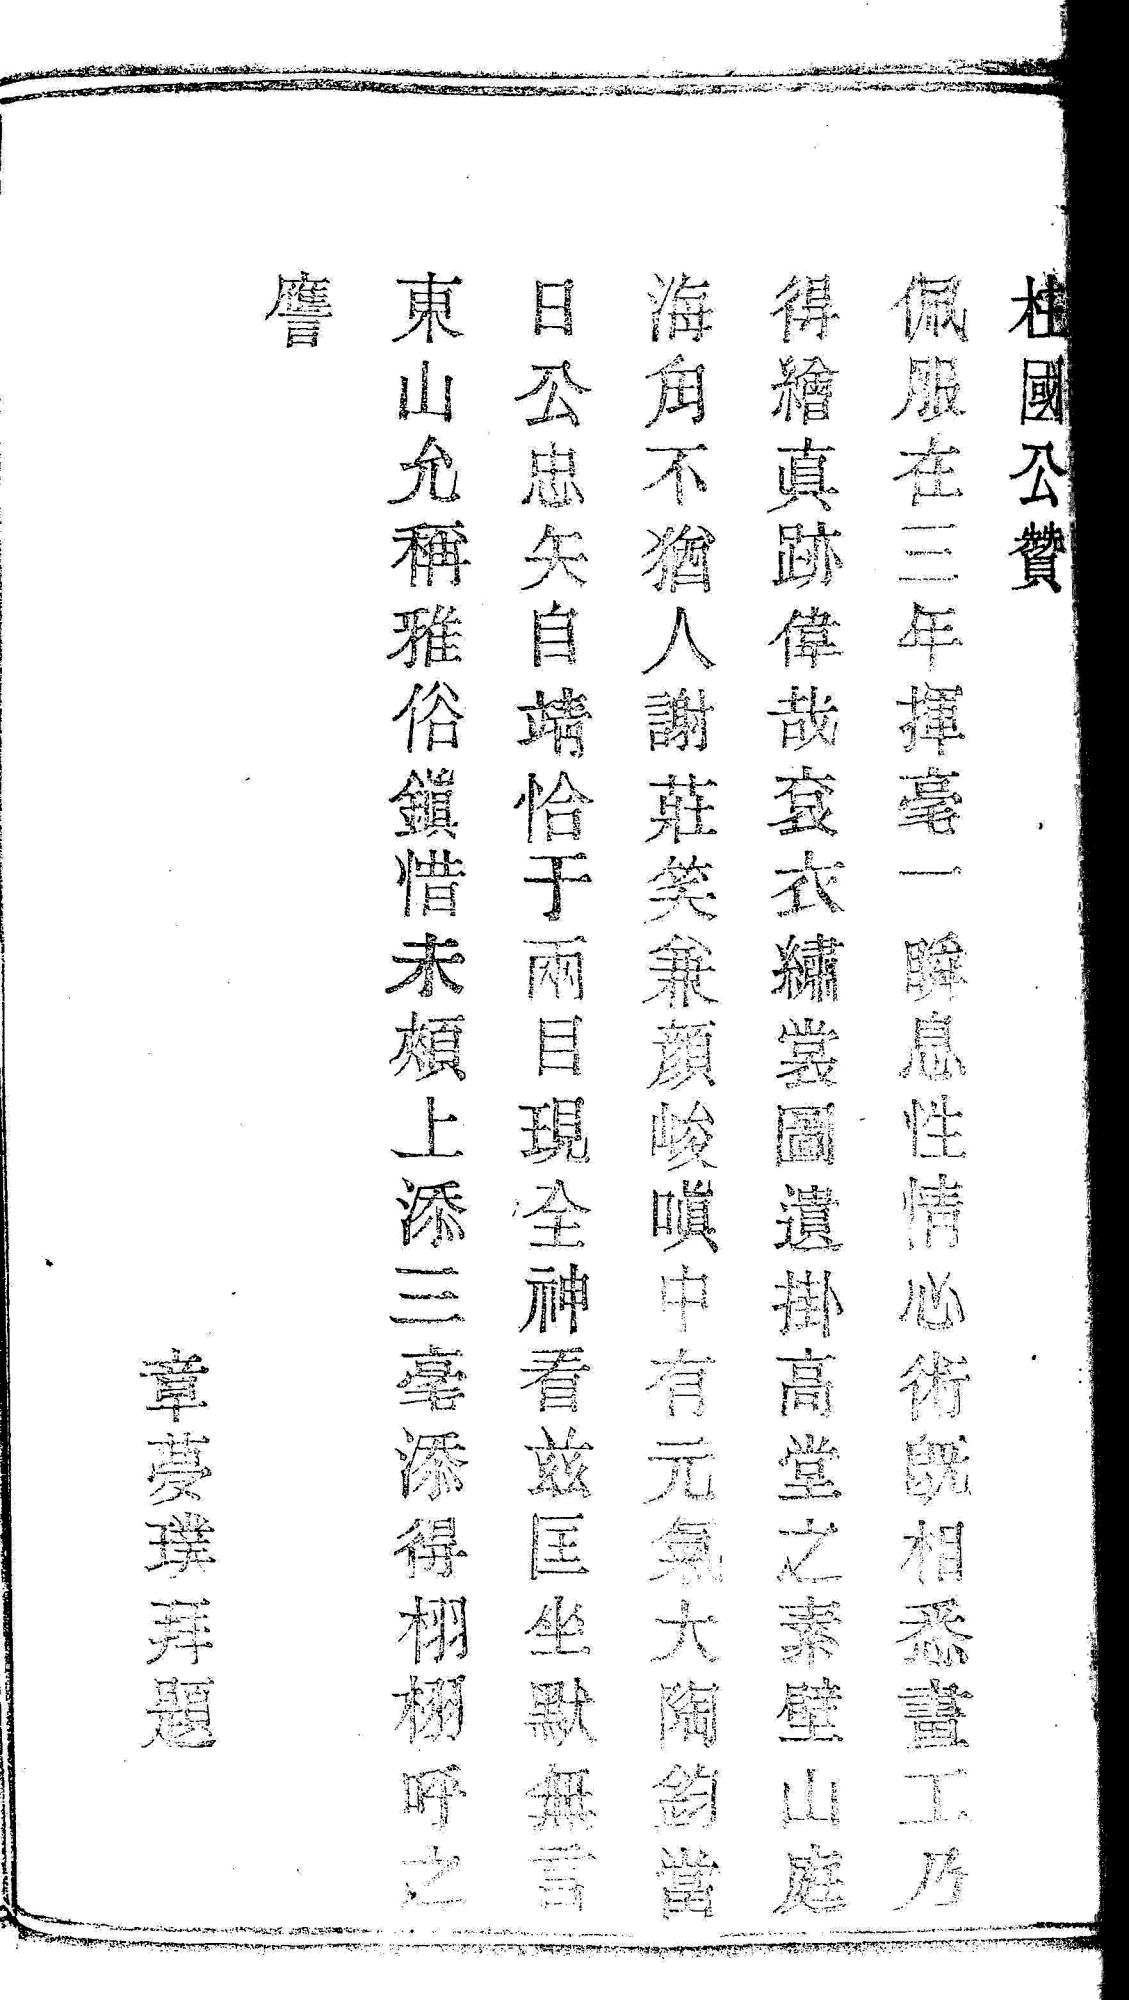 柱國公贊
佩服在三年揮毫一瞬息性情心術既相悉畫工乃
得繪真跡偉哉袞衣繡裳圖遺掛高堂之素壁山庭
海角不猶人謝莊笑兼顏峻嗔中有元氣大陶鈞當
日公忠矢自靖恰于兩目現全神看茲匡坐默無言
東山允稱雅俗鎮惜未頰上添三毫添得栩栩呼之
譍
章夢璞拜題